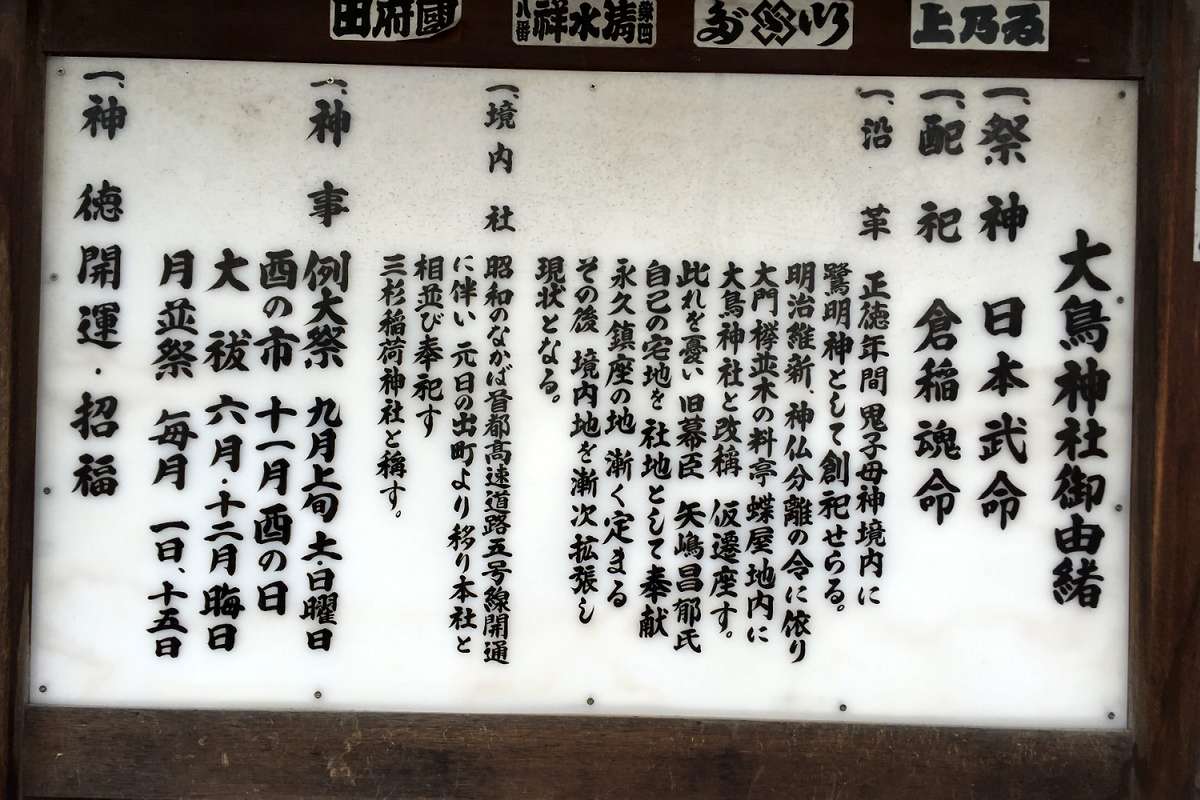 大鳥神社御由緒
一、祭神 日本武命
一、配祀 倉稲魂命
一、沿革 正徳年間 鬼子母神境内に
鷺明神として創祀せらる。
明治維新、神仏分離の令に依り
大門欅並木の料亭 蝶屋地内に
大鳥神社と改稱 仮遷座す。
此れを憂い 旧幕臣 矢嶋昌郁氏
自己の宅地を 社地として奉献
永久鎮座の地 漸く定まる
その後 境内地を漸次拡張し
現状となる。
一、境内社 昭和のなかば首都高速道路五号線開通
に伴い 元日の出町より移り本社と
相並び奉祀す
三杉稲荷神社と稱す。
一、神事 例大祭 九月上旬 土・日曜日
酉の市 十一月 酉の日
大祓 六月・十二月 晦日
月並祭 毎月 一日、十五日
一、神徳 開運・招福
國府田
第四
清水祥
八番
上乃